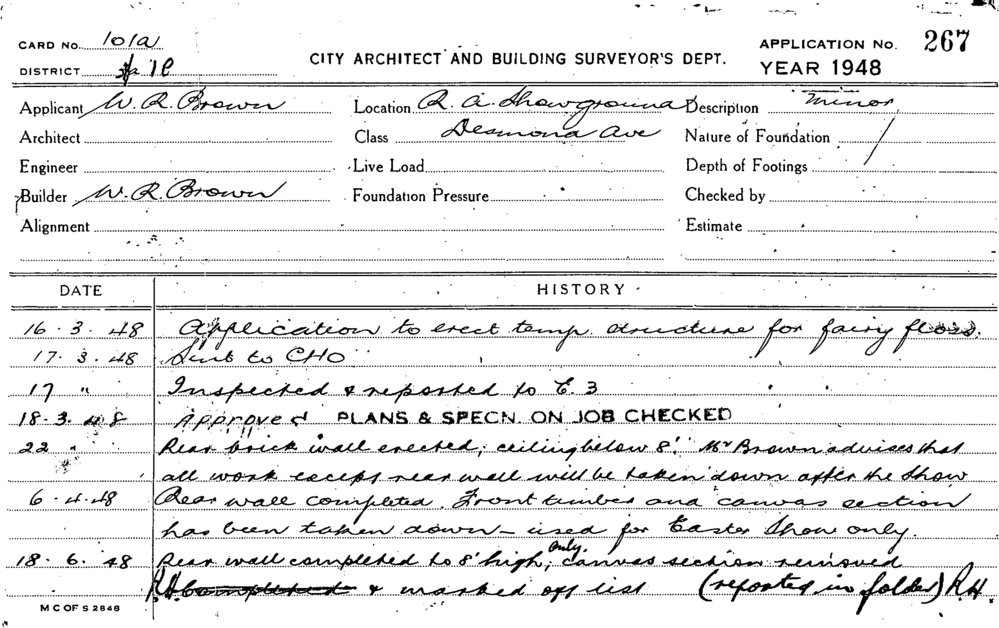 CARD NO. 101a
DISTRICT 1C
CITY ARCHITECT AND BUILDING SURVEYOR'S DEPT.
APPLICATION NO. 267
YEAR 1948
Applicant W. R. Brown Location R. A. Showground Description Minor
Architect Class Desmond Ave Nature of Foundation /
Engineer Live Load Depth of Footings
Builder W. R. Brown Foundation Pressure Checked by
Alignment Estimate
DATE HISTORY
16.3.48 Application to erect temp. structure for fairy floss.
17.3.48 Sent to CHO
17 " Inspected & reported to E.3
18-3.48 Approved PLANS & SPECN. ON JOB CHECKED
22 " Rear brick wall erected; ceiling below 8'. Mr Brown advises that
all work except rear wall will be taken down after the Show
6.4.48 Rear wall completed. Front timber and canvas section
has been taken down – used for Easter Show only.
18.6.48 Rear wall completed to 8' high, only. canvas section removed
R.H. completed & marked off list (reported in folder) R.H.
M C OF S 2848